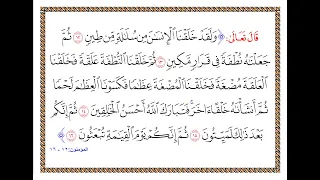 قال تعالى: ﴿ وَلَقَدْ خَلَقْنَا الْإِنسَٰنَ مِن سُلَٰلَةٍ مِّن طِينٍ ۝١٢ ثُمَّ
جَعَلْنَٰهُ نُطْفَةً فِى قَرَارٍ مَّكِينٍ ۝١٣ ثُمَّ خَلَقْنَا النُّطْفَةَ عَلَقَةً فَخَلَقْنَا
الْعَلَقَةَ مُضْغَةً فَخَلَقْنَا الْمُضْغَةَ عِظَٰمًا فَكَسَوْنَا الْعِظَٰمَ لَحْمًا
ثُمَّ أَنشَأْنَٰهُ خَلْقًا ءَاخَرَ فَتَبَارَكَ اللَّهُ أَحْسَنُ الْخَٰلِقِينَ ۝١٤ ثُمَّ إِنَّكُم
بَعْدَ ذَٰلِكَ لَمَيِّتُونَ ۝١٥ ثُمَّ إِنَّكُمْ يَوْمَ الْقِيَٰمَةِ تُبْعَثُونَ ۝١٦ ﴾
المؤمنون: ١٢ - ١٦